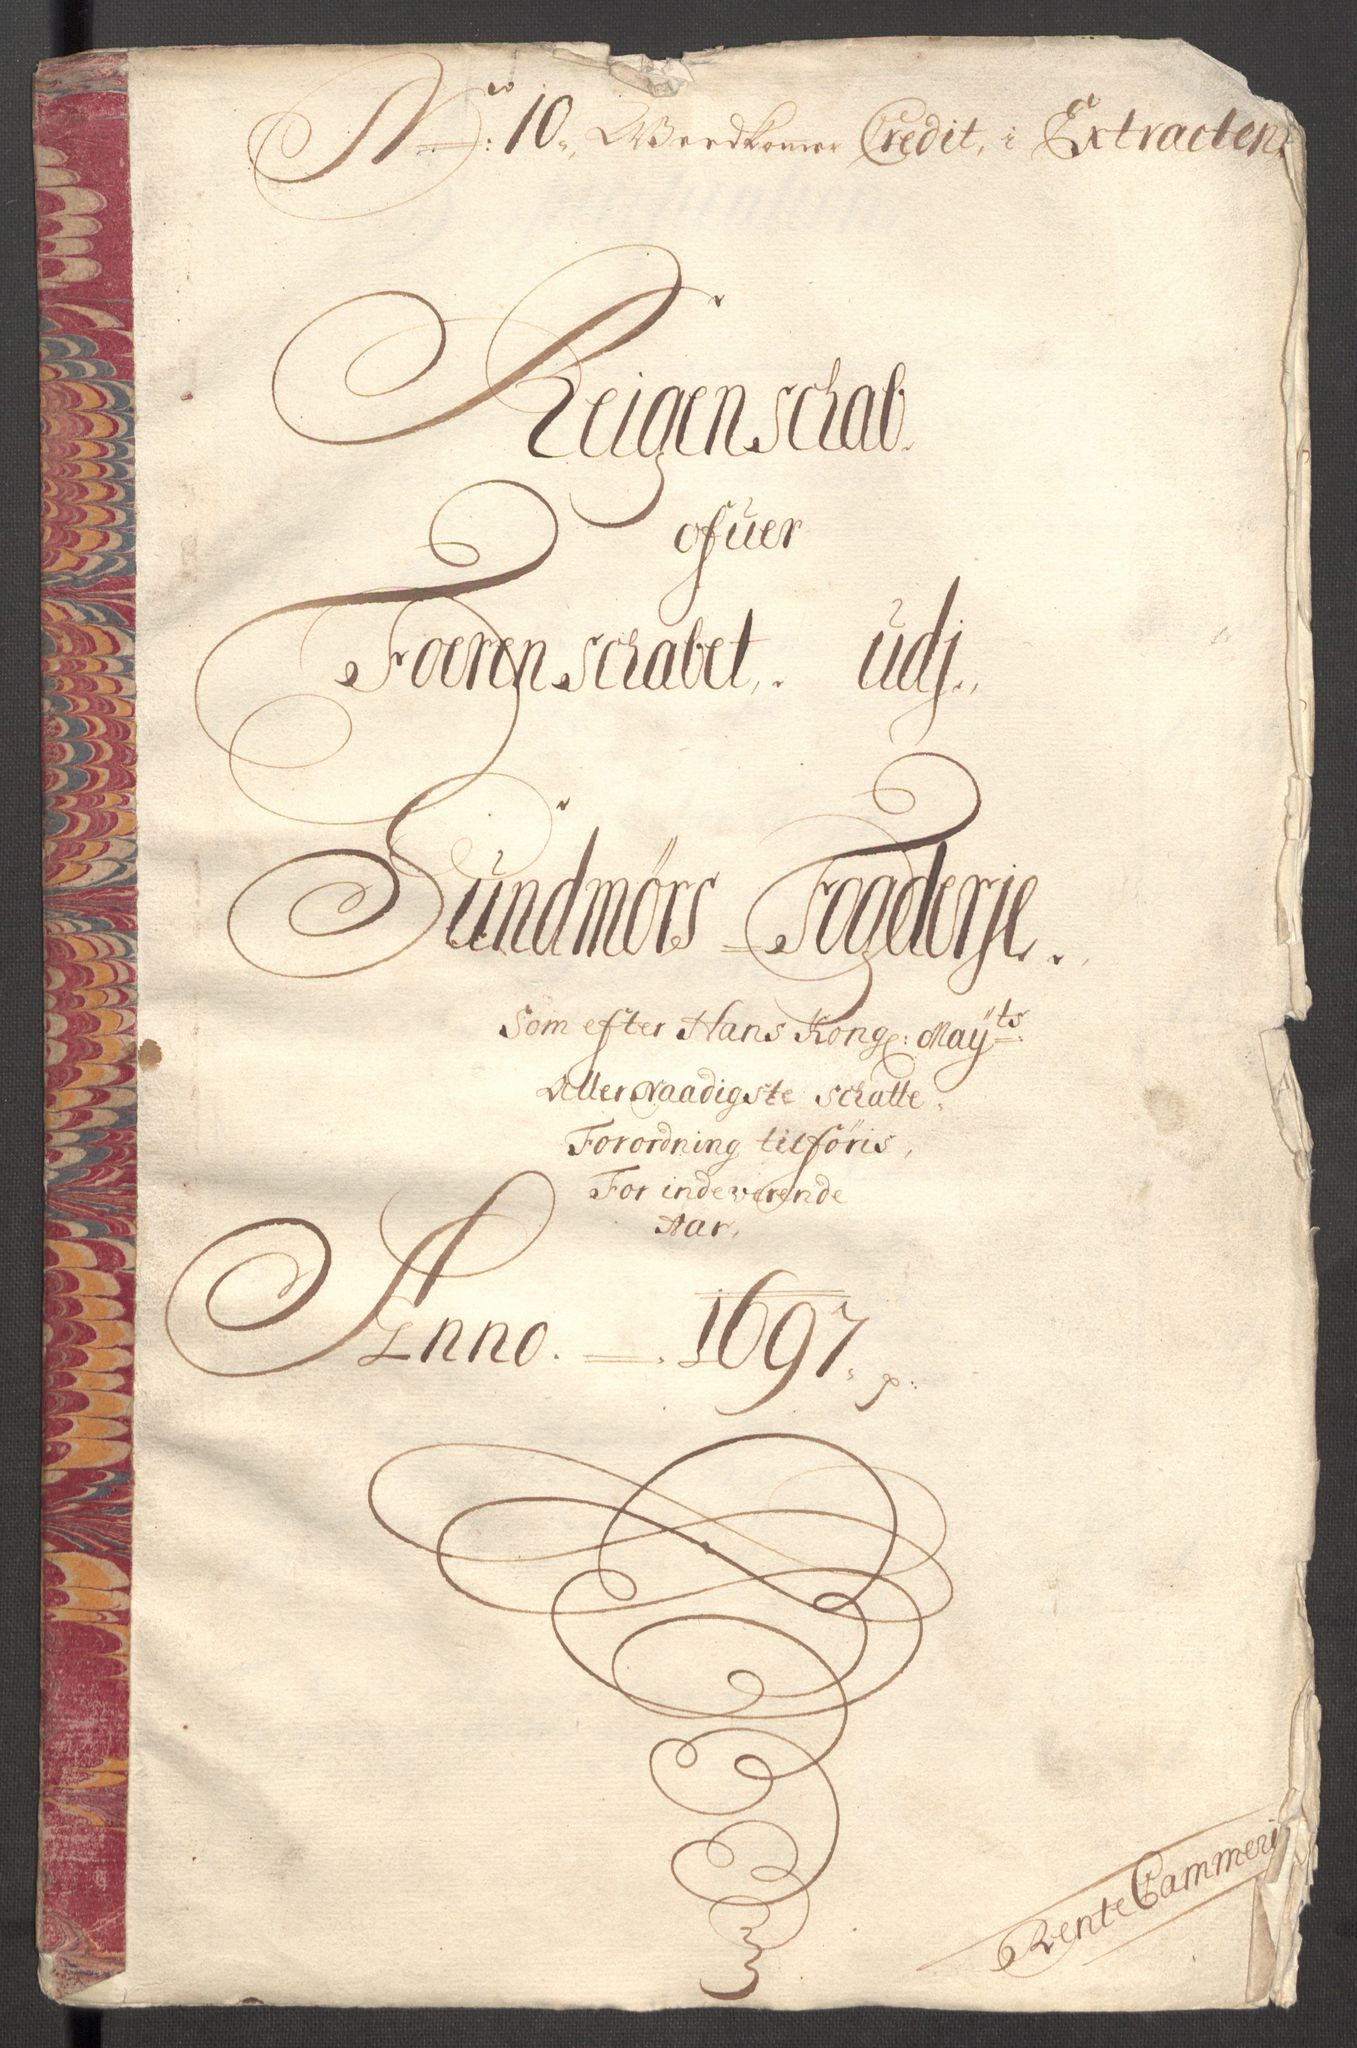 No: 10., Wedkomer Credit, i Extracten
Reigenschab
ofuer
Foerenschabet, udj
Sundmørs Fogderje.
Som efter Hans Kongl: Mayts
Allernaadigste schatte
Forordning tilføris,
For indeverende
Aar,
Anno. 1697. p:
RenteCammeri